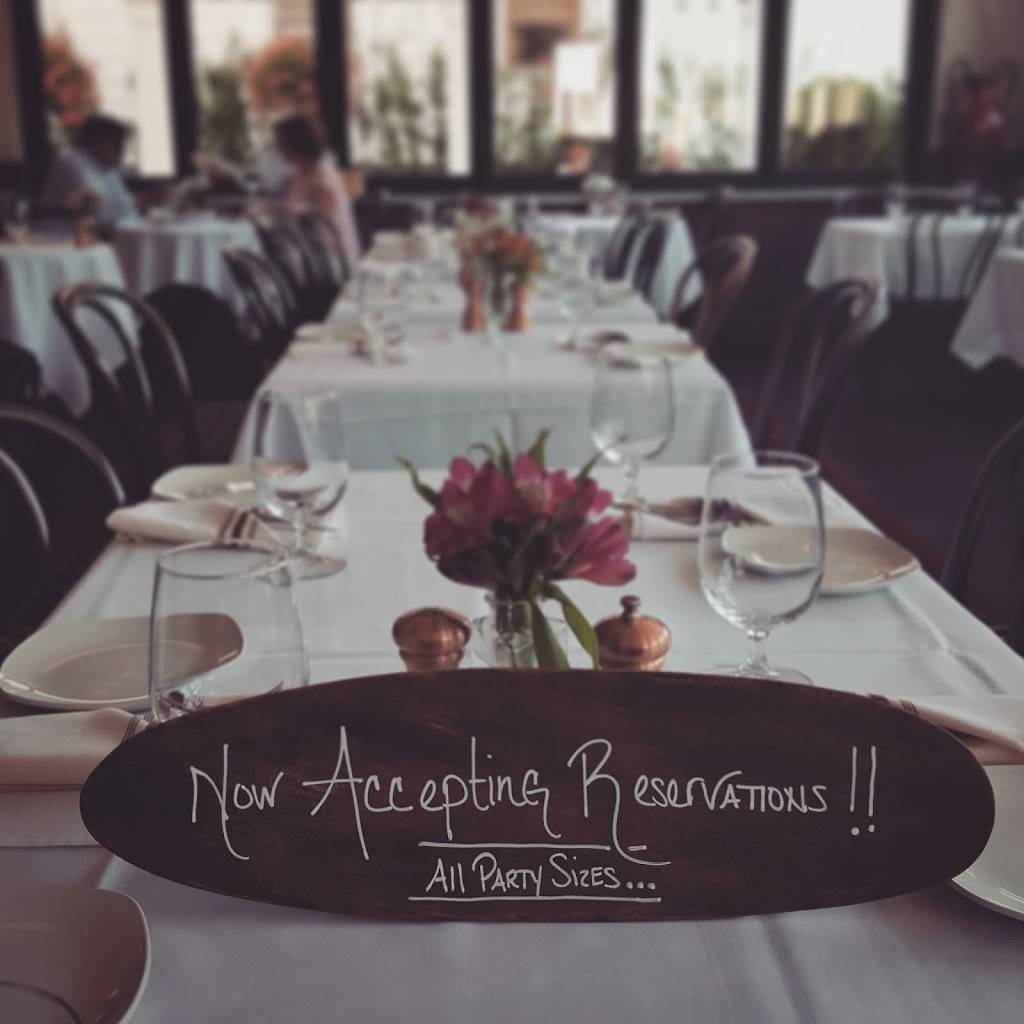 Now Accepting Reservations!!
All Party Sizes...